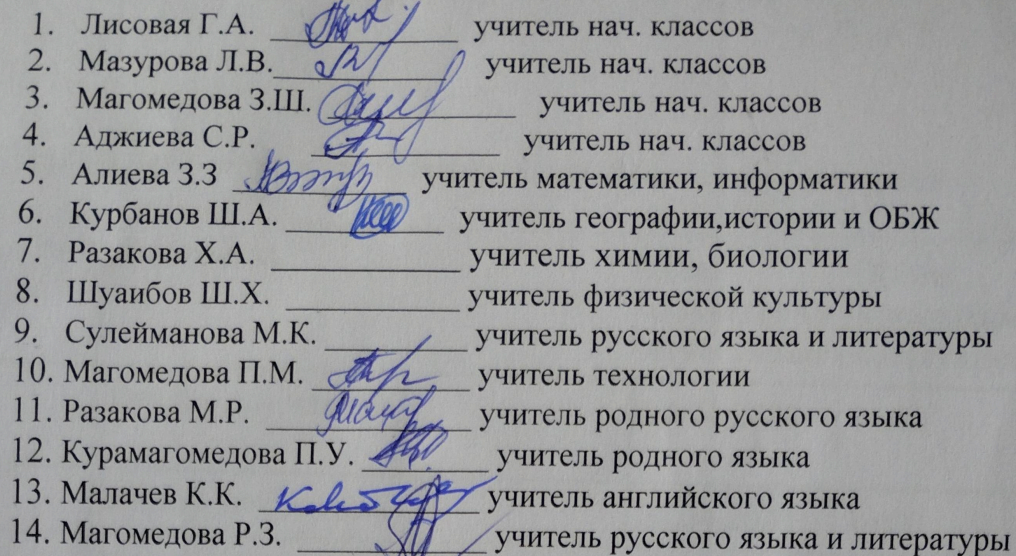 1. Лисовая Г.А. учитель нач. классов
2. Мазурова Л.В. учитель нач. классов
3. Магомедова З.Ш. учитель нач. классов
4. Аджиева С.Р. учитель нач. классов
5. Алиева З.З учитель математики, информатики
6. Курбанов Ш.А. учитель географии,истории и ОБЖ
7. Разакова Х.А. учитель химии, биологии
8. Шуаибов Ш.Х. учитель физической культуры
9. Сулейманова М.К. учитель русского языка и литературы
10. Магомедова П.М. учитель технологии
11. Разакова М.Р. учитель родного русского языка
12. Курамагомедова П.У. учитель родного языка
13. Малачев К.К. учитель английского языка
14. Магомедова Р.З. учитель русского языка и литературы